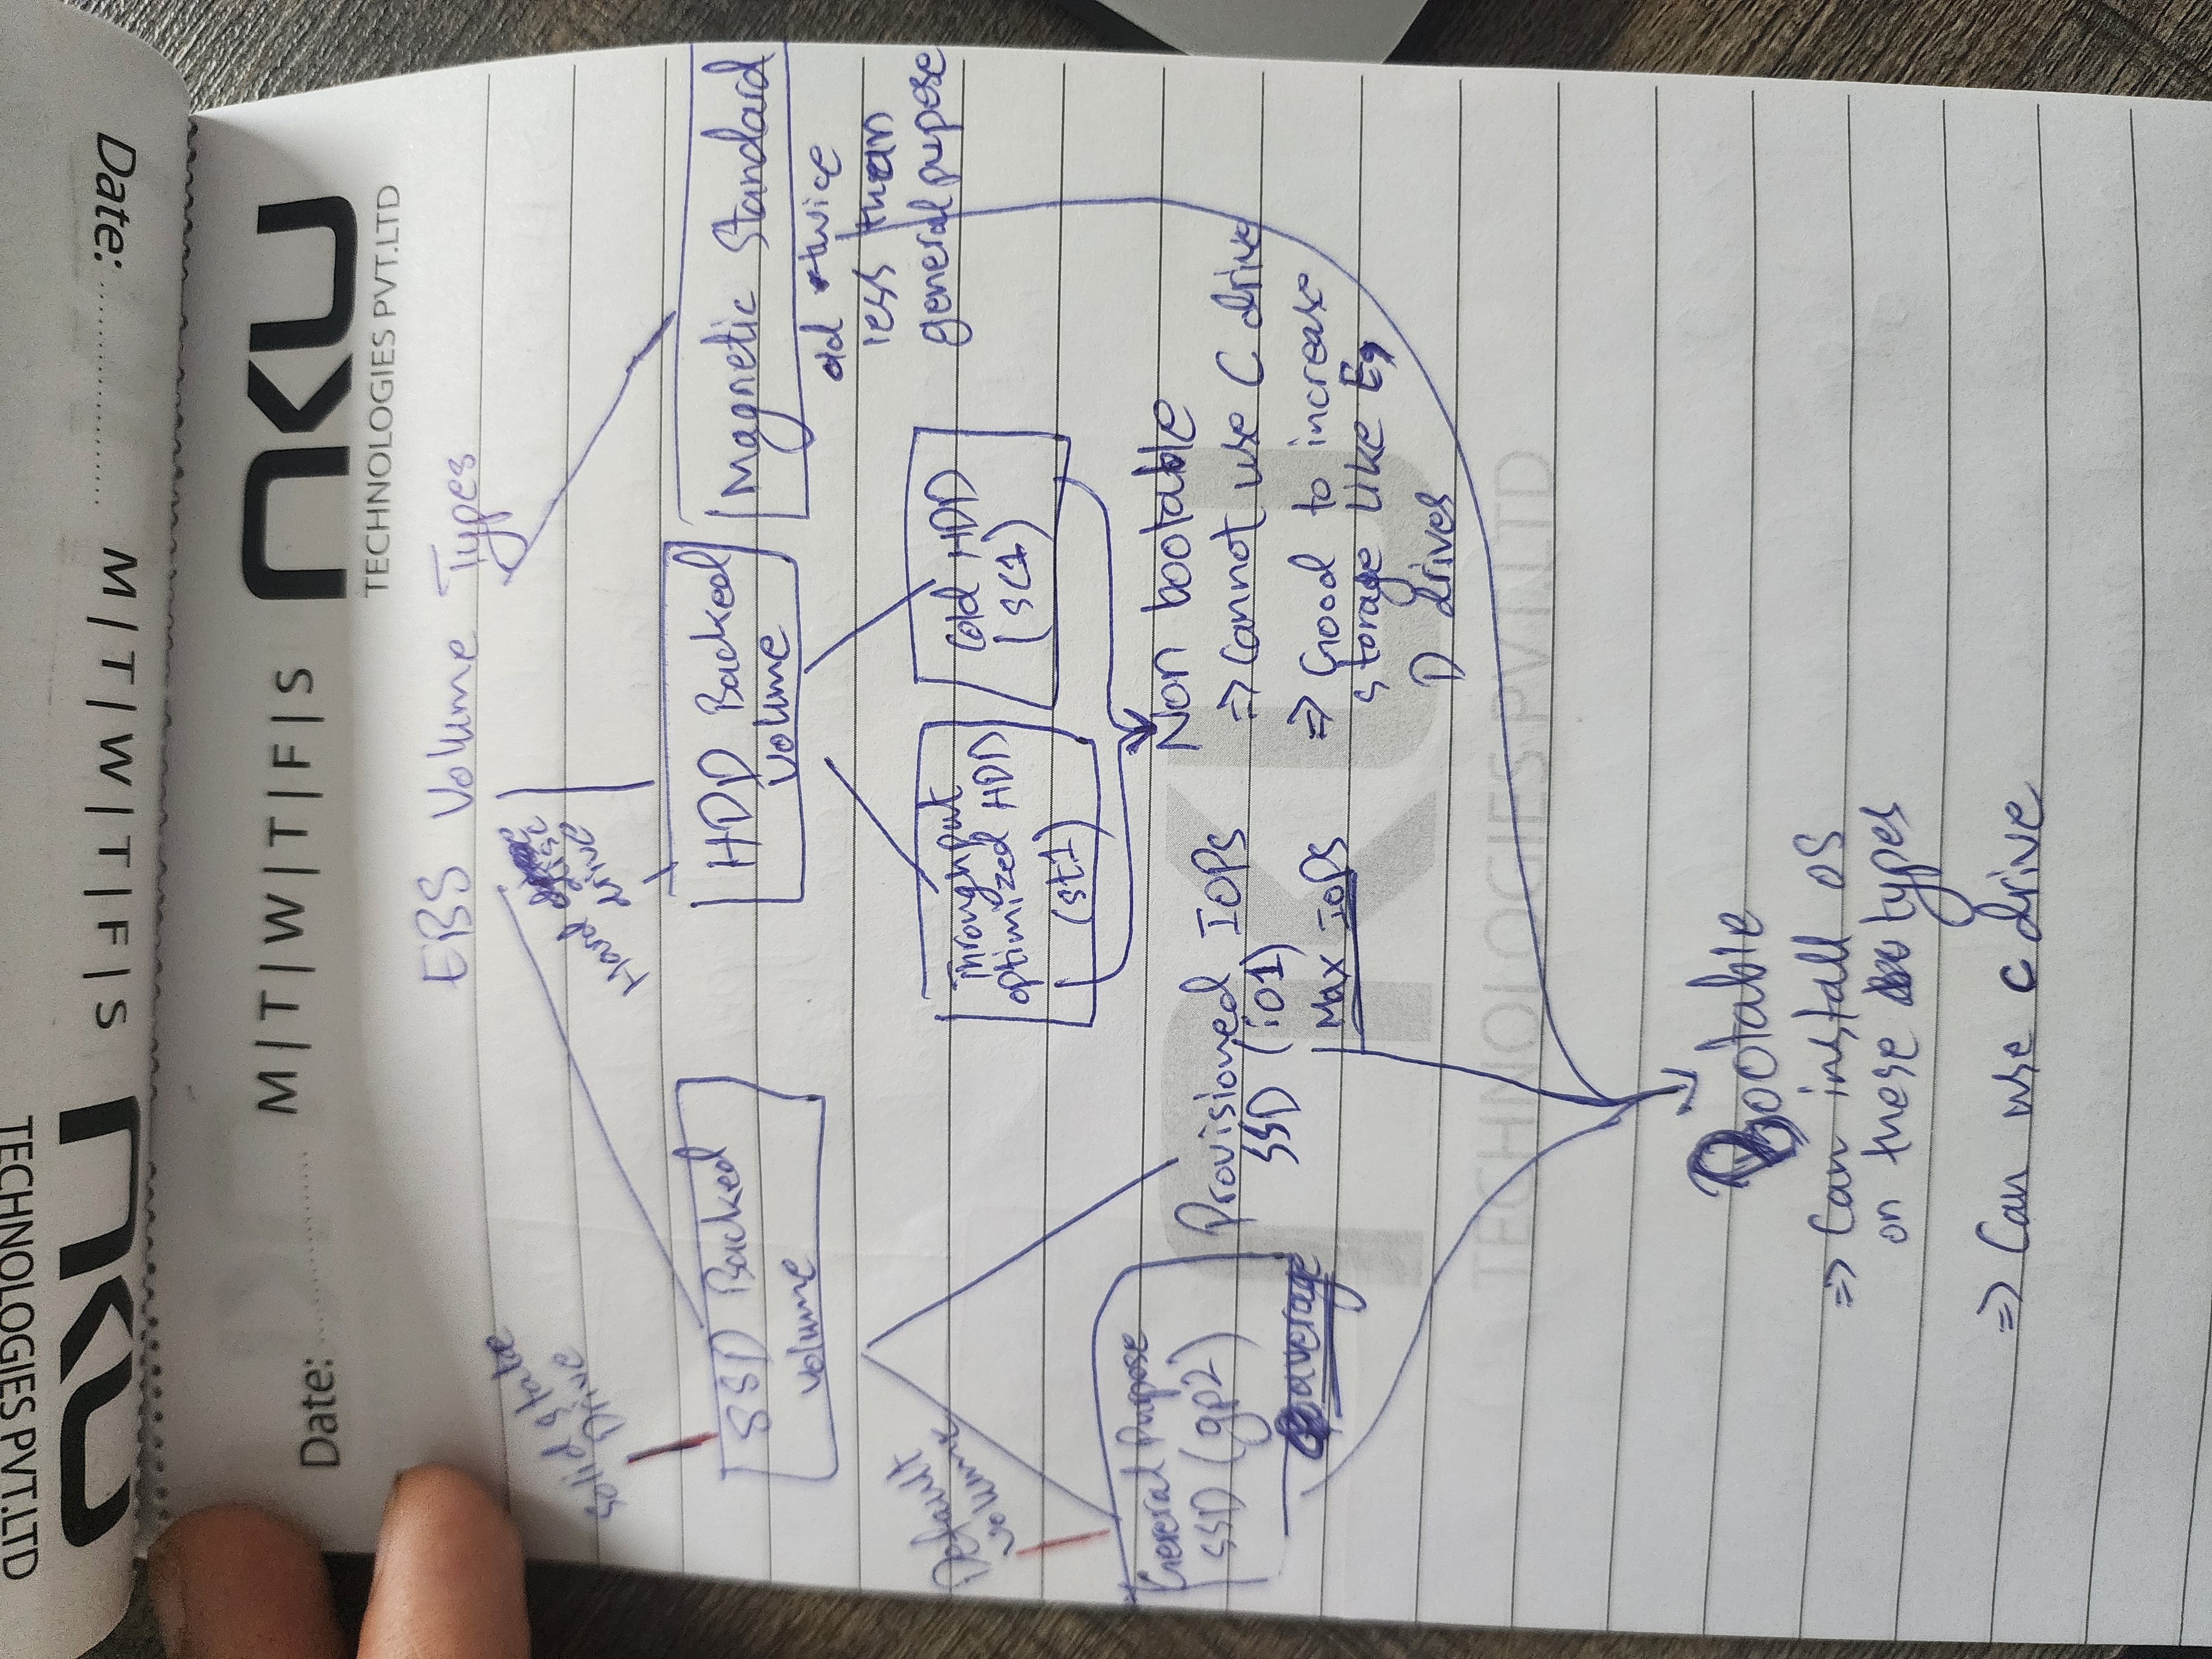 Date:
M|T|W|T|F|S
NKU
TECHNOLOGIES PVT.LTD
Date:
M|T|W|T|F|S
NKU
TECHNOLOGIES PVT.LTD
EBS Volume Types
Solid state
Drive
Hard
Drive
SSD Backed
volume
HDD Backed
volume
Magnetic Standard
old twice
less than
general pupose
Default
volume
Throughput
optimized HDD
(st1)
Cold HDD
(SC1)
General Pupose
SSD (gp2)
average
Provisioned IOPS
SSD (io1)
Max IOPS
Non bootable
=> Cannot use C drive
=> Good to increase
storage like E,
D drives
NKU
TECHNOLOGIES PVT.LTD
Bootable
=> Can install OS
on these types
=> Can use C drive